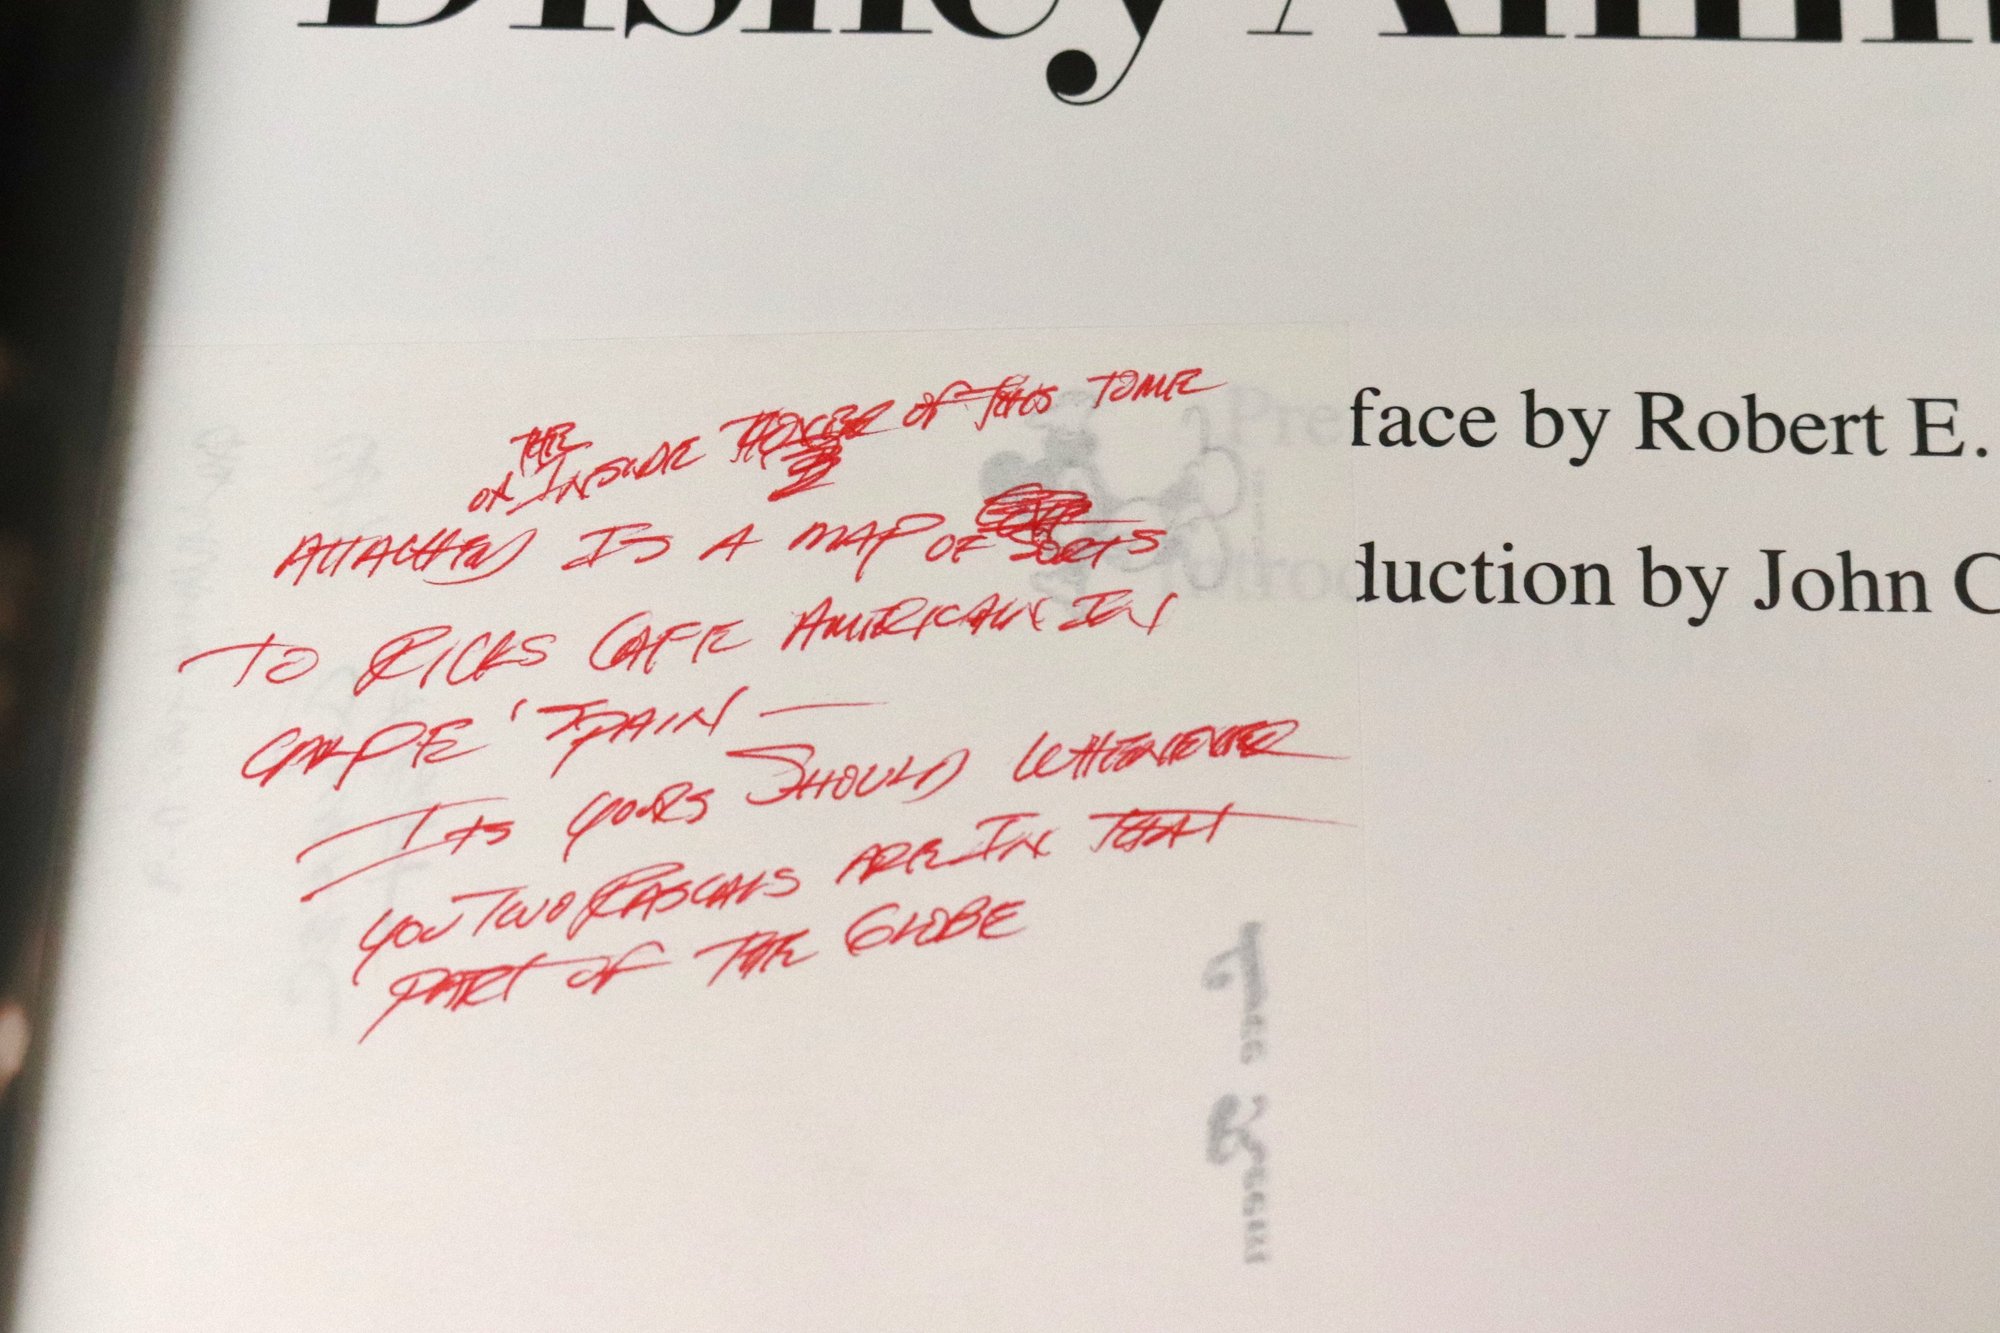 Disney Anim
THE
ON INSIDE COVER OF THIS TOME
ATTACHED IS A MAP OF SORTS
TO RICKS CAFE AMERICAN IN
CALPE 'SPAIN —
ITS YOURS SHOULD WHENEVER
YOU TWO RASCALS ARE IN THAT
PART OF THE GLOBE
Preface by Robert E.
Introduction by John C